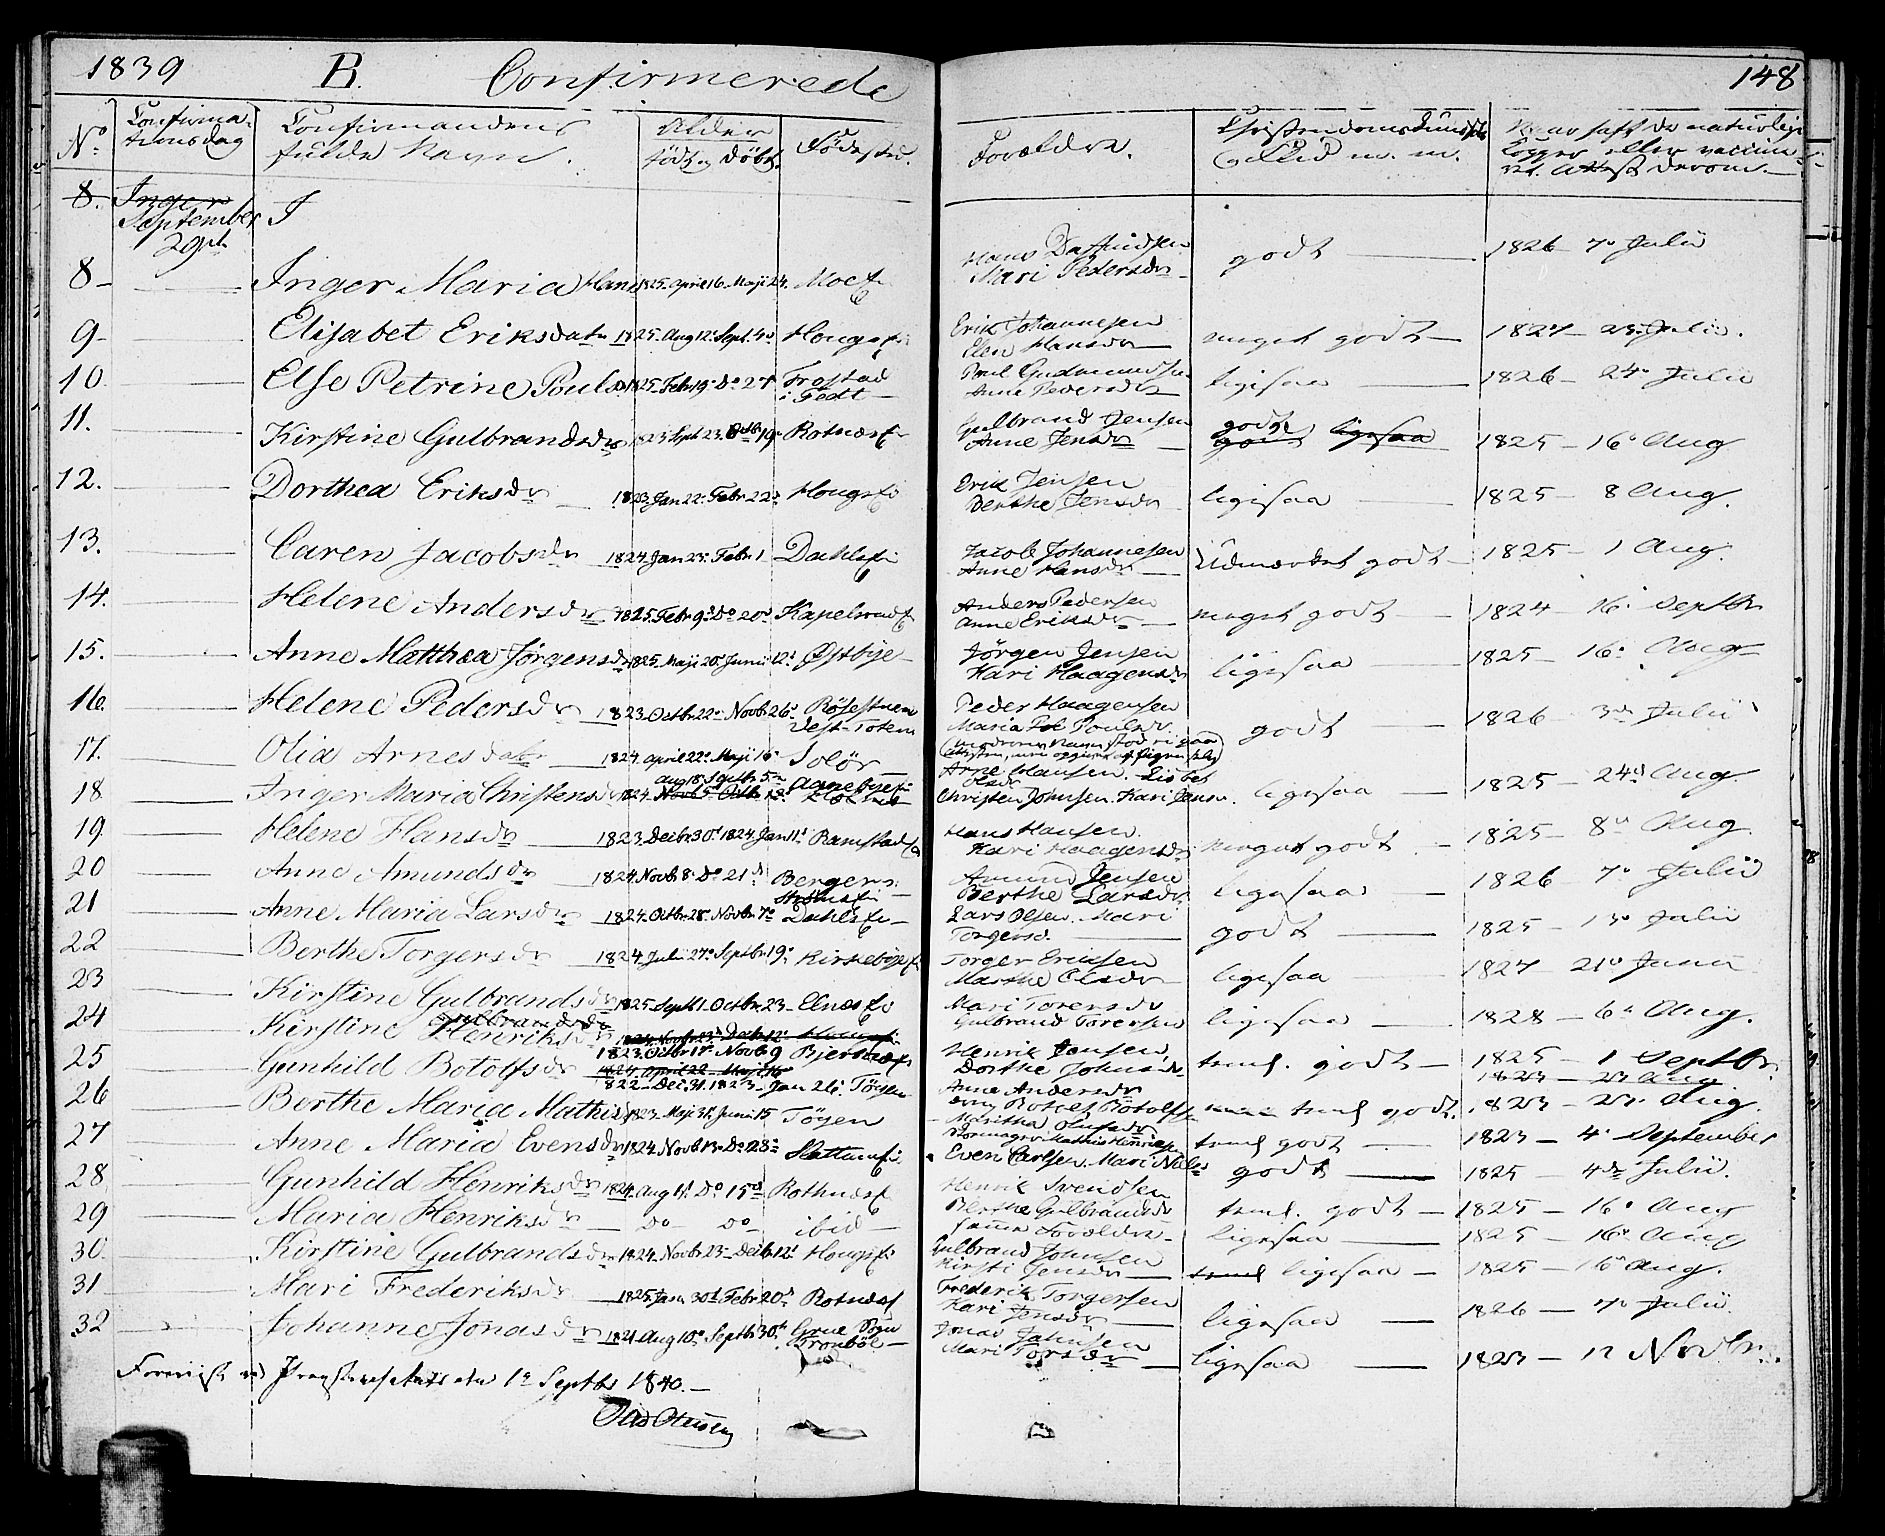 1839 B. Confirmerede 148
No Confirma-tionsdag Confirmandens fulde Navn. Alder født og døbt. Fødested. Forældre. Christendomskundskab og Flid m. m. Naar haft de naturlige Kopper eller vaccine- ret. Attest derom.
8. Inger
September 29de I
8 Inger Maria Hans 1825. April 16. Maji 24. Moe Hans Mari Pedersdr godt 1826 7de Julii
9 Elisabet Eriksdatr 1825. Aug 12. Sept. 4de Hougs Erik Johannesen Elen Hansdr meget godt 1827 Julii.
10 Else Petrine Pouls 1825. Febr 19. Do 27. Frostad i Fedt Poul Gudmundsen Anne Pedersdr ligesaa 1826 24de Julii
11. Kirstine Gulbrandsdr 1823 Sept 23. Octbr 19. Rotnæs Gulbrand Jensen Anne Jensdr godt ligesaa 1825 16. Aug
12. Dorthea Eriksdr 1823 Jan 22. Febr 22. Hougs Erik Jensen Berthe Jensdr ligesaa 1825 8 Aug.
13. Caren Jacobsdr 1824. Jan 23. Febr. 1 Dahls Jacob Johannesen Anne Hansdr Udmærket godt 1825 1 Aug.
14. Helene Andersdr 1825. Febr 9. Do 20. Kapelsrud Anders Pedersen Anne Eriksdr meget godt 1824 16. Septbr
15. Anne Matthea Jørgensdr 1825. Maji 20. Junii 12. Østbye Jørgen Jensen Kari Haagensdr ligesaa 1825 16. Aug
16. Helene Pedersdr 1823. Octbr 22. Novb 26. Vest-Toten Peder Haagensen Maria Poulsdr godt 1826 3de Julii
17. Olia Arnesdatr 1824. April 22. Maji 16. Solør Arne Hansen. Lisbet Olsdr
18 Inger Maria Christensdr 1824 Aug 18. Septbr 5. Novb 5. Octb 13. Aanebye Christen Johnsen. Kari Jensdr. ligesaa 1825 24de Aug
19 Helene Hansdr 1823. Decbr 30. 1824. Jan 11. Ramstad Hans Hansen. Kari Haagensdr meget godt 1825 8de Aug.
20 Anne Amundsdr 1824. Novb 8. Do 21. Bergers Amund Jensen Berthe Larsdr ligesaa 1826 7de Julii
21 Anne Maria Larsdr 1824. Octbr 28. Novbr 7. Dahls Lars Olsen. Mari Torgersd. godt 1825 13. Julii
22 Berthe Torgersdr 1824. Julii 27. Septbr 19. Kirkebye Torger Eriksen Marthe Olsdr ligesaa 1827 21de Junii
23 Kirstine Gulbrandsdr 1825. Sept 1. Octbr. 23 Elnæs Mari Torersdr Gulbrand Torersen ligesaa 1828 6. Aug.
24 Kirstine Gulbrandsdr Henriksdr 1824. Novbr 23. Decbr 12. 1823. Octbr 17. Novb 9 Bjertnæs Henrik Jensen. Dorthe Johnsdr teml. godt 1825 1 Septbr.
25 Gunhild Botolfsdr 1824. April 22. Maji 16 1822. Dec 31. 1823. Jan 26. Tøyen Anne Andersdr teml godt. 1823 Aug.
26 Berthe Maria Mathis 1823. Maji 31. Junii 15 Tøyen teml godt 1823 4. September
27 Anne Maria Evensdr 1824. Novb 13. Do 28. Even Carlsen. Mari Nilsd godt 1825 4de Julii.
28 Gunhild Henriksdr 1824. Aug 1. Do 15. Rothnæs Henrik Svendsen Berthe Gulbrandsdr teml. godt 1825 16. Aug
29 Maria Henriksdr do do ibid samme Forældre ligesaa 1825 16. Aug
30. Kirstine Gulbrandsdr 1824. Novbr 23. Decbr 12. Hougs Gulbrand Johnsen Kirsti Jensdr teml ligesaa 1825 16. Aug.
31 Mari Frederiksdr 1825. Jan. 30. Febr 20. Rotnæs Frederik Torgersen Kari Jensdr ligesaa 1826 7de Julii.
32 Johanne Jonasdr 1821. Aug 10. Septbr 30. Jonas Mari Torsdr ligesaa 1823 12 Novbr.
Foreviist ved 1. Septbr 1840.